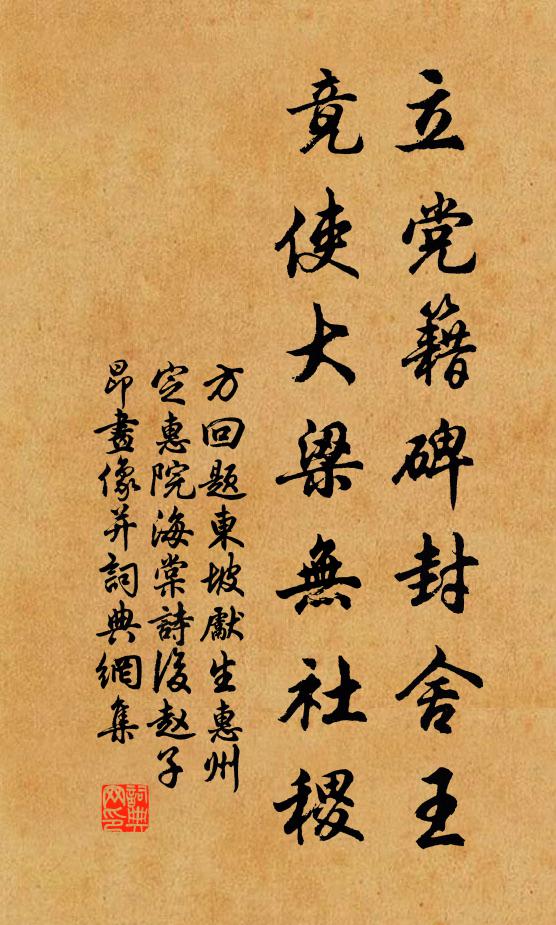 立党籍碑封舍王
竟使大梁無社稷
方回题東坡獻生惠州
定惠院海棠詩後赵子
昂畫像并詞典網集
詞典
网印